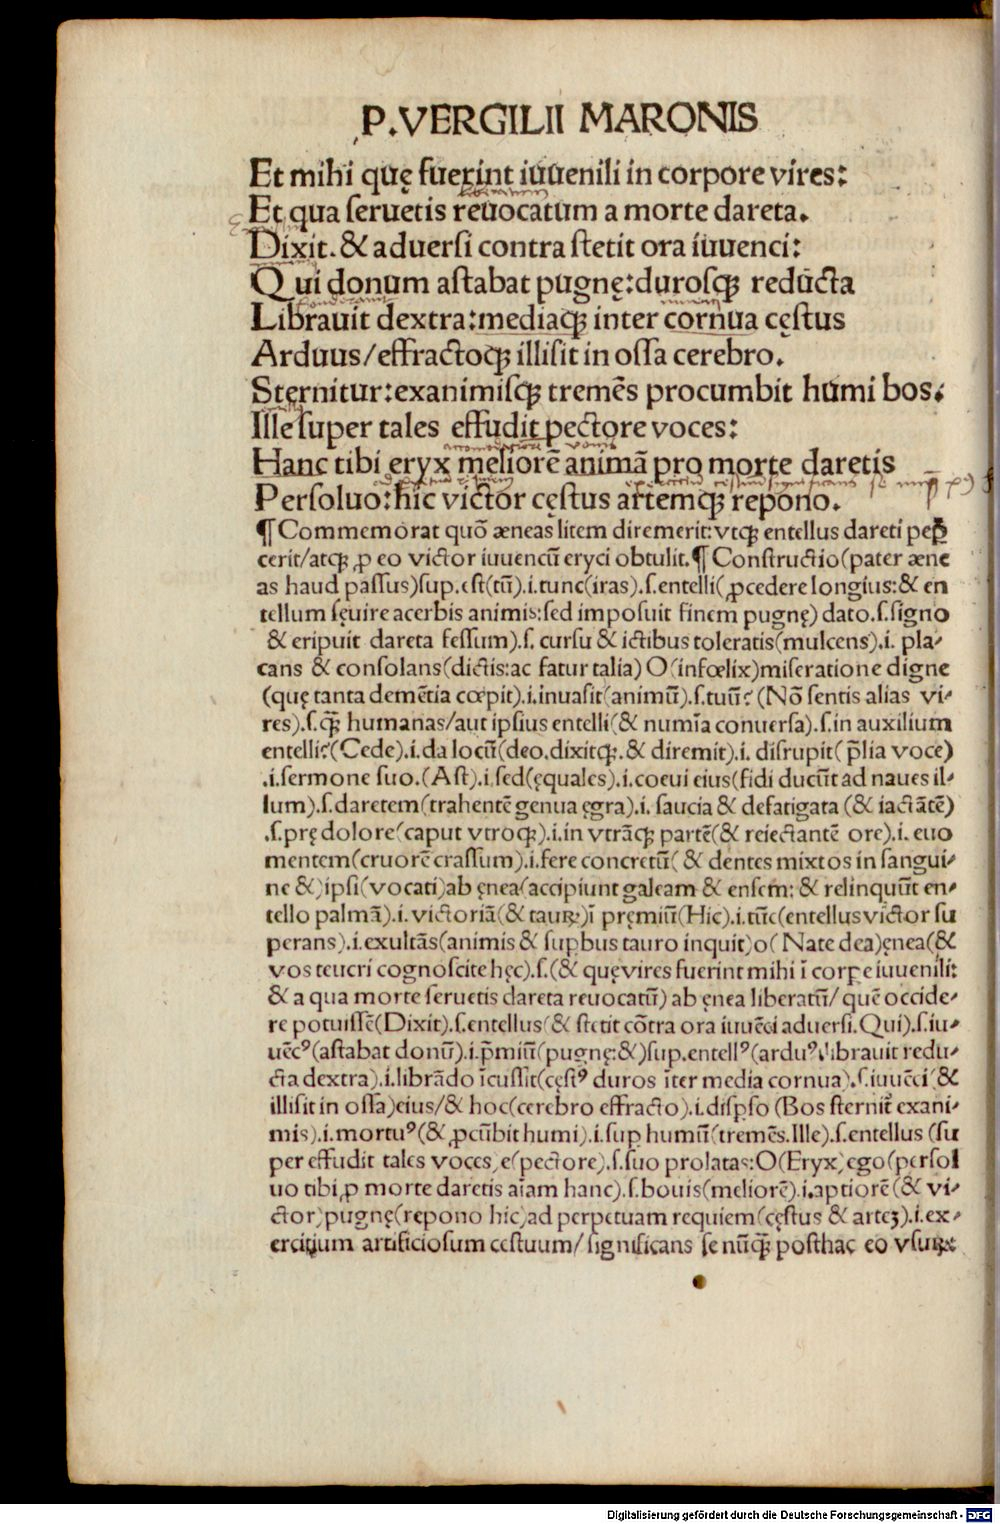 P.VERGILII MARONIS
Et mihi quę fuerint iuuenili in corpore vires:
Et qua seruetis reuocatum a morte dareta.
Dixit.& aduersi contra stetit ora iuuenci:
Qui donum astabat pugnę:durosqꝫ reducta
Librauit dextra:mediaqꝫ inter cornua cęstus
Arduus/effractoqꝫ illisit in ossa cerebro.
Sternitur:exanimisqꝫ tremēs procumbit humi bos.
Ille super tales effudit pectore voces:
Hanc tibi eryx meliorē animā pro morte daretis
Persoluo:hic victor cęstus artemqꝫ repono.
¶ Commemorat quō æneas litem diremerit:vtqꝫ entellus dareti peꝑ
cerit/atqꝫ ꝓ eo victor iuuencū eryci obtulit.¶ Constructio(pater æne
as haud passus)sup.est(tū).i.tunc(iras).s.entelli(ꝓcedere longius:& en
tellum sęuire acerbis animis:sed imposuit finem pugnę) dato.s.signo
& eripuit dareta fessum).s. cursu & ictibus toleratis(mulcens).i. pla-
cans & consolans(dictis:ac fatur talia) O(infœlix)miseratione digne
(quę tanta demētia cœpit).i.inuasit(animū).s.tuū?(Nō sentis alias vi-
res).s.qꝫ̄ humanas/aut ipsius entelli(& numīa conuersa).s.in auxilium
entelli?(Cede).i.da locū(deo.dixitqꝫ.& diremit).i. disrupit(p̄lia voce)
.i.sermone suo.(Ast).i.sed(ęquales).i.coeui eius(fidi ducūt ad naues il-
lum).s.daretem(trahentē genua ęgra).i. saucia & defatigata (& iactātē)
.s.prę dolore(caput vtroqꝫ).i.in vtrāqꝫ partē(& reiectantē ore).i. euo
mentem(cruorē crassum).i.fere concretū( & dentes mixtos in sangui-
ne &)ipsi(vocati)ab ęnea(accipiunt galeam & ensem: & relinquūt en-
tello palmā).i. victoriā(& tauꝝ)ī pręmiū(Hic).i.tūc(entellus victor su
perans).i.exultās(animis & suꝑbus tauro inquit)o( Nate dea)ęnea(&
vos teucri cognoscite hęc).s.(& quę vires fuerint mihi ī corꝑe iuuenili:
& a qua morte seruetis dareta reuocatū) ab ęnea liberatū/ quē occide-
re potuissē(Dixit).s.entellus(& stetit cōtra ora iuuēci aduersi.Qui).s.iu-
uēcꝰ(astabat donū).i.p̄miū(pugnę:&)sup.entellꝰ(arduꝰ librauit redu-
cta dextra).i.librādo īcussit(cęstꝰ duros īter media cornua).s.iuuēci(&
illisit in ossa)eius/& hoc(cerebro effracto).i.disꝑso (Bos sternit̄ exani-
mis).i.mortuꝰ(& ꝓcūbit humi).i.suꝑ humū(tremēs.Ille).s.entellus (su
per effudit tales voces e(pectore).s.suo prolatas:O(Eryx)ego(persol
uo tibi ꝓ morte daretis aīam hanc).s.bouis(meliorē).i.aptiorē(& vi-
ctor)pugnę(repono hic)ad perpetuam requiem(cęstus & arteꝫ).i.ex-
ercitium artificiosum cestuum/ significans se nūqꝫ̄ posthac eo vsuꝝ
Digitalisierung gefördert durch die Deutsche Forschungsgemeinschaft - DFG